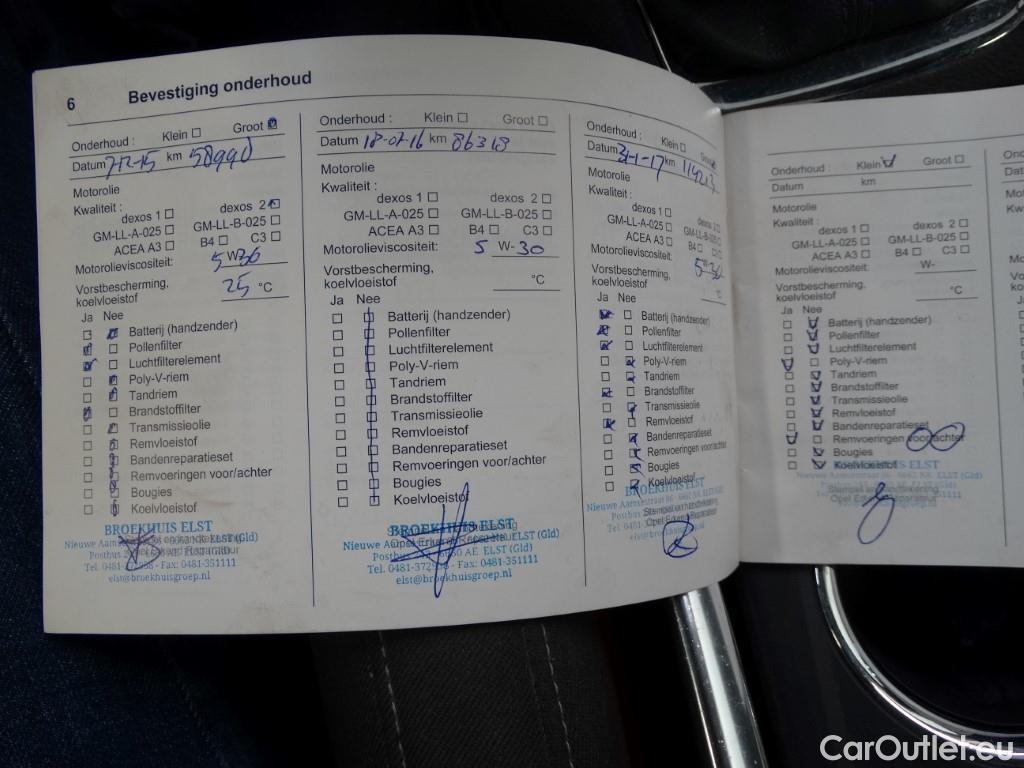 6 Bevestiging onderhoud
Onderhoud : Klein Groot
Datum 7-12-15 km 58990
Motorolie
Kwaliteit :
dexos 1 dexos 2
GM-LL-A-025 GM-LL-B-025
ACEA A3 B4 C3
Motorolieviscositeit: 5 W-30
Vorstbescherming,
koelvloeistof 25 °C
Ja Nee
Batterij (handzender)
Pollenfilter
Luchtfilterelement
Poly-V-riem
Tandriem
Brandstoffilter
Transmissieolie
Remvloeistof
Bandenreparatieset
Remvoeringen voor/achter
Bougies
Koelvloeistof
BROEKHUIS ELST
Elst (Gld)
Tel. 0481-372958 - Fax: 0481-351111
elst@broekhuisgroep.nl
Onderhoud : Klein Groot
Datum 18-07-16 km 86318
Motorolie
Kwaliteit :
dexos 1 dexos 2
GM-LL-A-025 GM-LL-B-025
ACEA A3 B4 C3
Motorolieviscositeit: 5 W- 30
Vorstbescherming,
koelvloeistof °C
Ja Nee
Batterij (handzender)
Pollenfilter
Luchtfilterelement
Poly-V-riem
Tandriem
Brandstoffilter
Transmissieolie
Remvloeistof
Bandenreparatieset
Remvoeringen voor/achter
Bougies
Koelvloeistof
BROEKHUIS ELST
Nieuwe
ELST (Gld)
Tel. 0481-372958 - Fax: 0481-351111
elst@broekhuisgroep.nl
Onderhoud : Klein Groot
Datum 31-1-17 km 119213
Motorolie
Kwaliteit :
dexos 1 dexos 2
GM-LL-A-025 GM-LL-B-025
ACEA A3 B4
Motorolieviscositeit: 5 W-30
Vorstbescherming,
koelvloeistof
Ja Nee
Batterij (handzender)
Pollenfilter
Luchtfilterelement
Poly-V-riem
Tandriem
Brandstoffilter
Transmissieolie
Remvloeistof
Bandenreparatieset
Remvoeringen voor/achter
Bougies
Koelvloeistof
BROEKHUIS ELST
Stempel en handtekening
Opel Erkend Reparateur
Onderhoud : Klein Groot
Datum km
Motorolie
Kwaliteit :
dexos 1 dexos 2
GM-LL-A-025 GM-LL-B-025
ACEA A3 B4 C3
Motorolieviscositeit: W-
Vorstbescherming,
koelvloeistof °C
Ja Nee
Batterij (handzender)
Pollenfilter
Luchtfilterelement
Poly-V-riem
Tandriem
Brandstoffilter
Transmissieolie
Remvloeistof
Bandenreparatieset
Remvoeringen voor/achter
Bougies
Koelvloeistof
BROEKHUIS ELST
Stempel en handtekening
Opel Erkend Reparateur
CarOutlet.eu